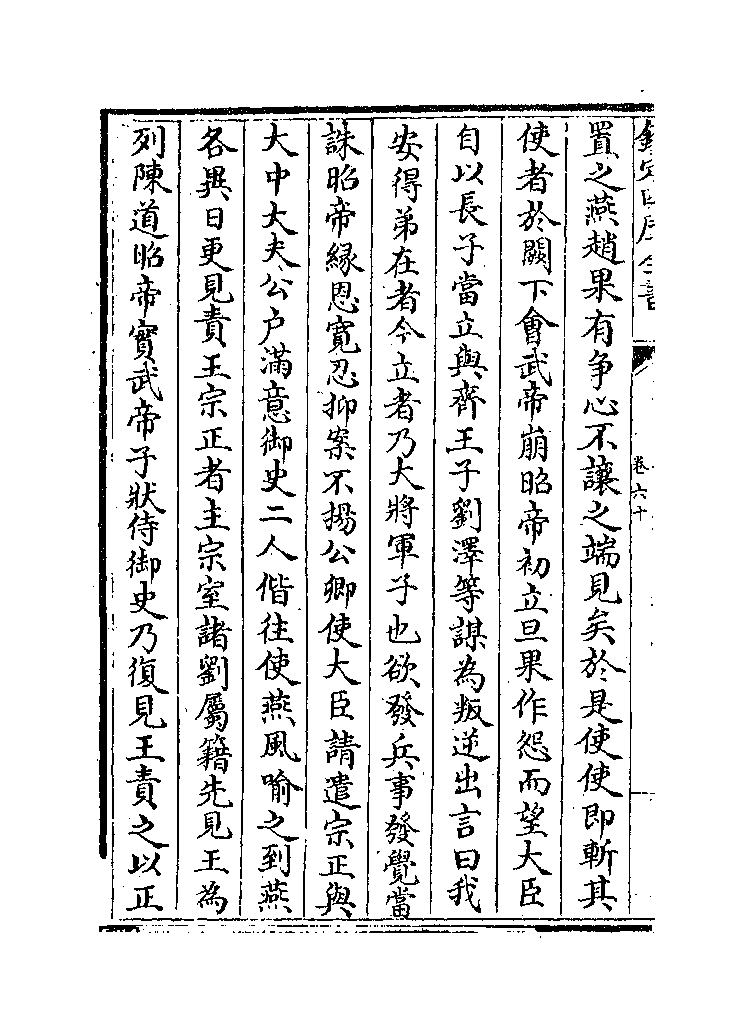 欽定四庫全書
卷六十
置之燕趙果有争心不讓之端見矣於是使使即斬其
使者於闕下會武帝崩昭帝初立旦果作怨而望大臣
自以長子當立與齊王子劉澤等謀為叛逆出言曰我
安得弟在者今立者乃大將軍子也欲發兵事發覺當
誅昭帝緣恩寛忍抑案不揚公卿使大臣請遣宗正與
大中大夫公户滿意御史二人偕往使燕風喻之到燕
各異日更見責王宗正者主宗室諸劉屬籍先見王為
列陳道昭帝實武帝子狀侍御史乃復見王責之以正